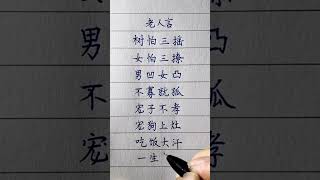 老人言
树怕三摇
女怕三撩
男凹女凸
不寡就孤
宠子不孝
宠狗上灶
吃饭大汗
一生